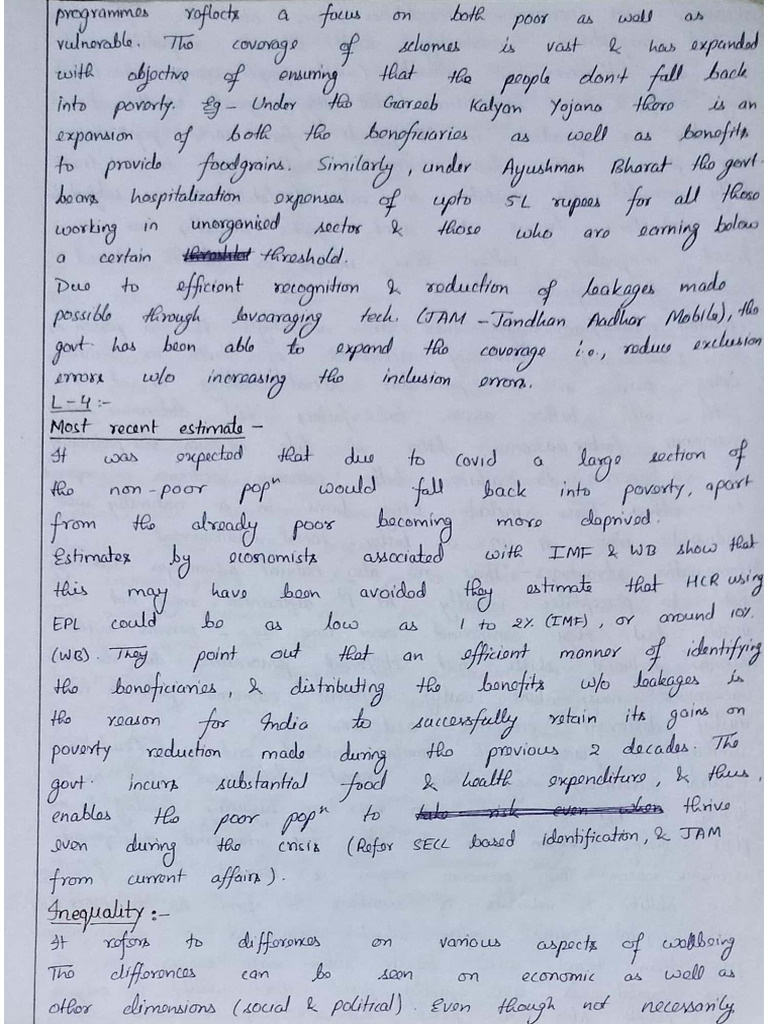 programmes reflects a focus on both poor as well as
vulnerable. The coverage of schemes is vast & has expanded
with objective of ensuring that the people don't fall back
into poverty. Eg - Under the Gareeb Kalyan Yojana there is an
expansion of both the beneficiaries as well as benefits
to provide foodgrains. Similarly, under Ayushman Bharat the govt.
bears hospitalization expenses of upto 5L rupees for all those
working in unorganised sector & those who are earning below
a certain threshold.
Due to efficient recognition & reduction of leakages made
possible through levearaging tech. (JAM - Jandhan Aadhar Mobile), the
govt. has been able to expand the coverage i.e., reduce exclusion
errors w/o increasing the inclusion errors.
L-4:-
Most recent estimate -
It was expected that due to covid a large section of
the non-poor popⁿ would fall back into poverty, apart
from the already poor becoming more deprived.
Estimates by economists associated with IMF & WB show that
this may have been avoided they estimate that HCR using
EPL could be as low as 1 to 2% (IMF), or around 10%
(WB). They point out that an efficient manner of identifying
the beneficiaries, & distributing the benefits w/o leakages is
the reason for India to successfully retain its gains on
poverty reduction made during the previous 2 decades. The
govt. incurs substantial food & health expenditure, & thus,
enables the poor popⁿ to take risk even when thrive
even during the crisis (Refer SECC based identification, & JAM
from current affairs).
Inequality :-
It refers to differences on various aspects of wellbeing
The differences can be seen on economic as well as
other dimensions (social & political). Even though not necessarily